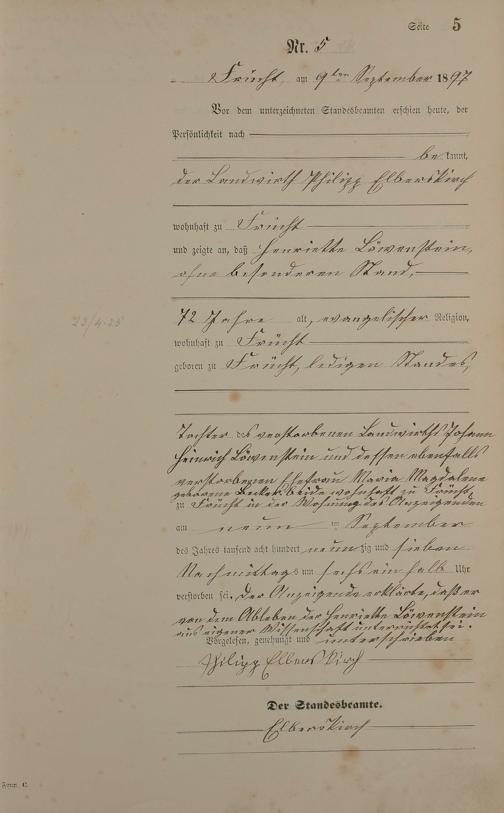 Seite 5
Nr. 5
Frücht, am 9ten September 1897
Vor dem unterzeichneten Standesbeamten erschien heute, der
Persönlichkeit nach
be kannt,
der Landwirth Philipp Elberskirch
wohnhaft zu Frücht
und zeigte an, daß Henriette Löwenstein,
ohne besonderen Stand,
72 Jahre alt, evangelischer Religion,
wohnhaft zu Frücht
geboren zu Frücht, ledigen Standes,
Tochter des verstorbenen Landwirths Johann
Heinrich Löwenstein und dessen ebenfalls
verstorbenen Ehefrau Maria Magdalene
geborene beide wohnhaft zu Frücht,
zu Frücht in der Wohnung des Anzeigenden
am neun ten September
des Jahres tausend acht hundert neun zig und sieben
Nachmittags um sechs ein halb Uhr
verstorben sei. Der Anzeigende erklärte, daß er
von dem Ableben der Henriette Löwenstein
aus eigener Wissenschaft unterrichtet sei.
Vorgelesen, genehmigt und unterschrieben
Philipp Elberskirch
Der Standesbeamte.
Elberskirch
Form. C.